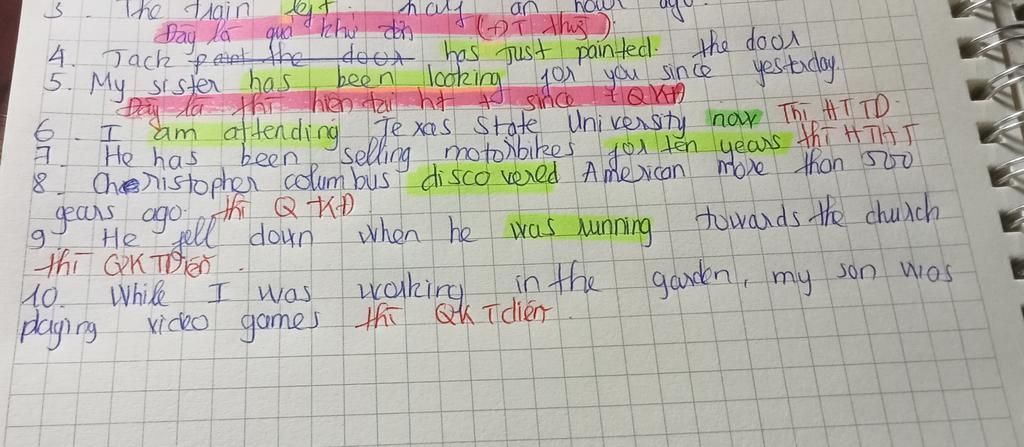 3. The train left half an hour ago.
Đây là quá khứ đơn (ĐT thg)
4. Jack paint the door has just painted. the door
5. My sister has been looking for you since yesterday.
Đây là thì hiện tại ht + since + QKĐ
6. I am attending Texas State University now Thì HTTD.
7. He has been selling motorbikes for ten years thì HTHT
8. Christopher columbus discovered American more than 500
years ago. thì QKĐ
9. He fell down when he was running towards the church
thì QKTDiễn.
10. While I was working in the garden, my son was
playing video games thì QKTdiễn.